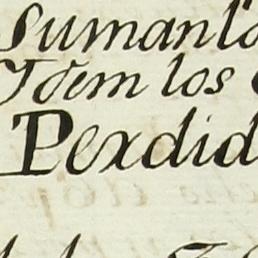 Suman l
Idem los
Perdid